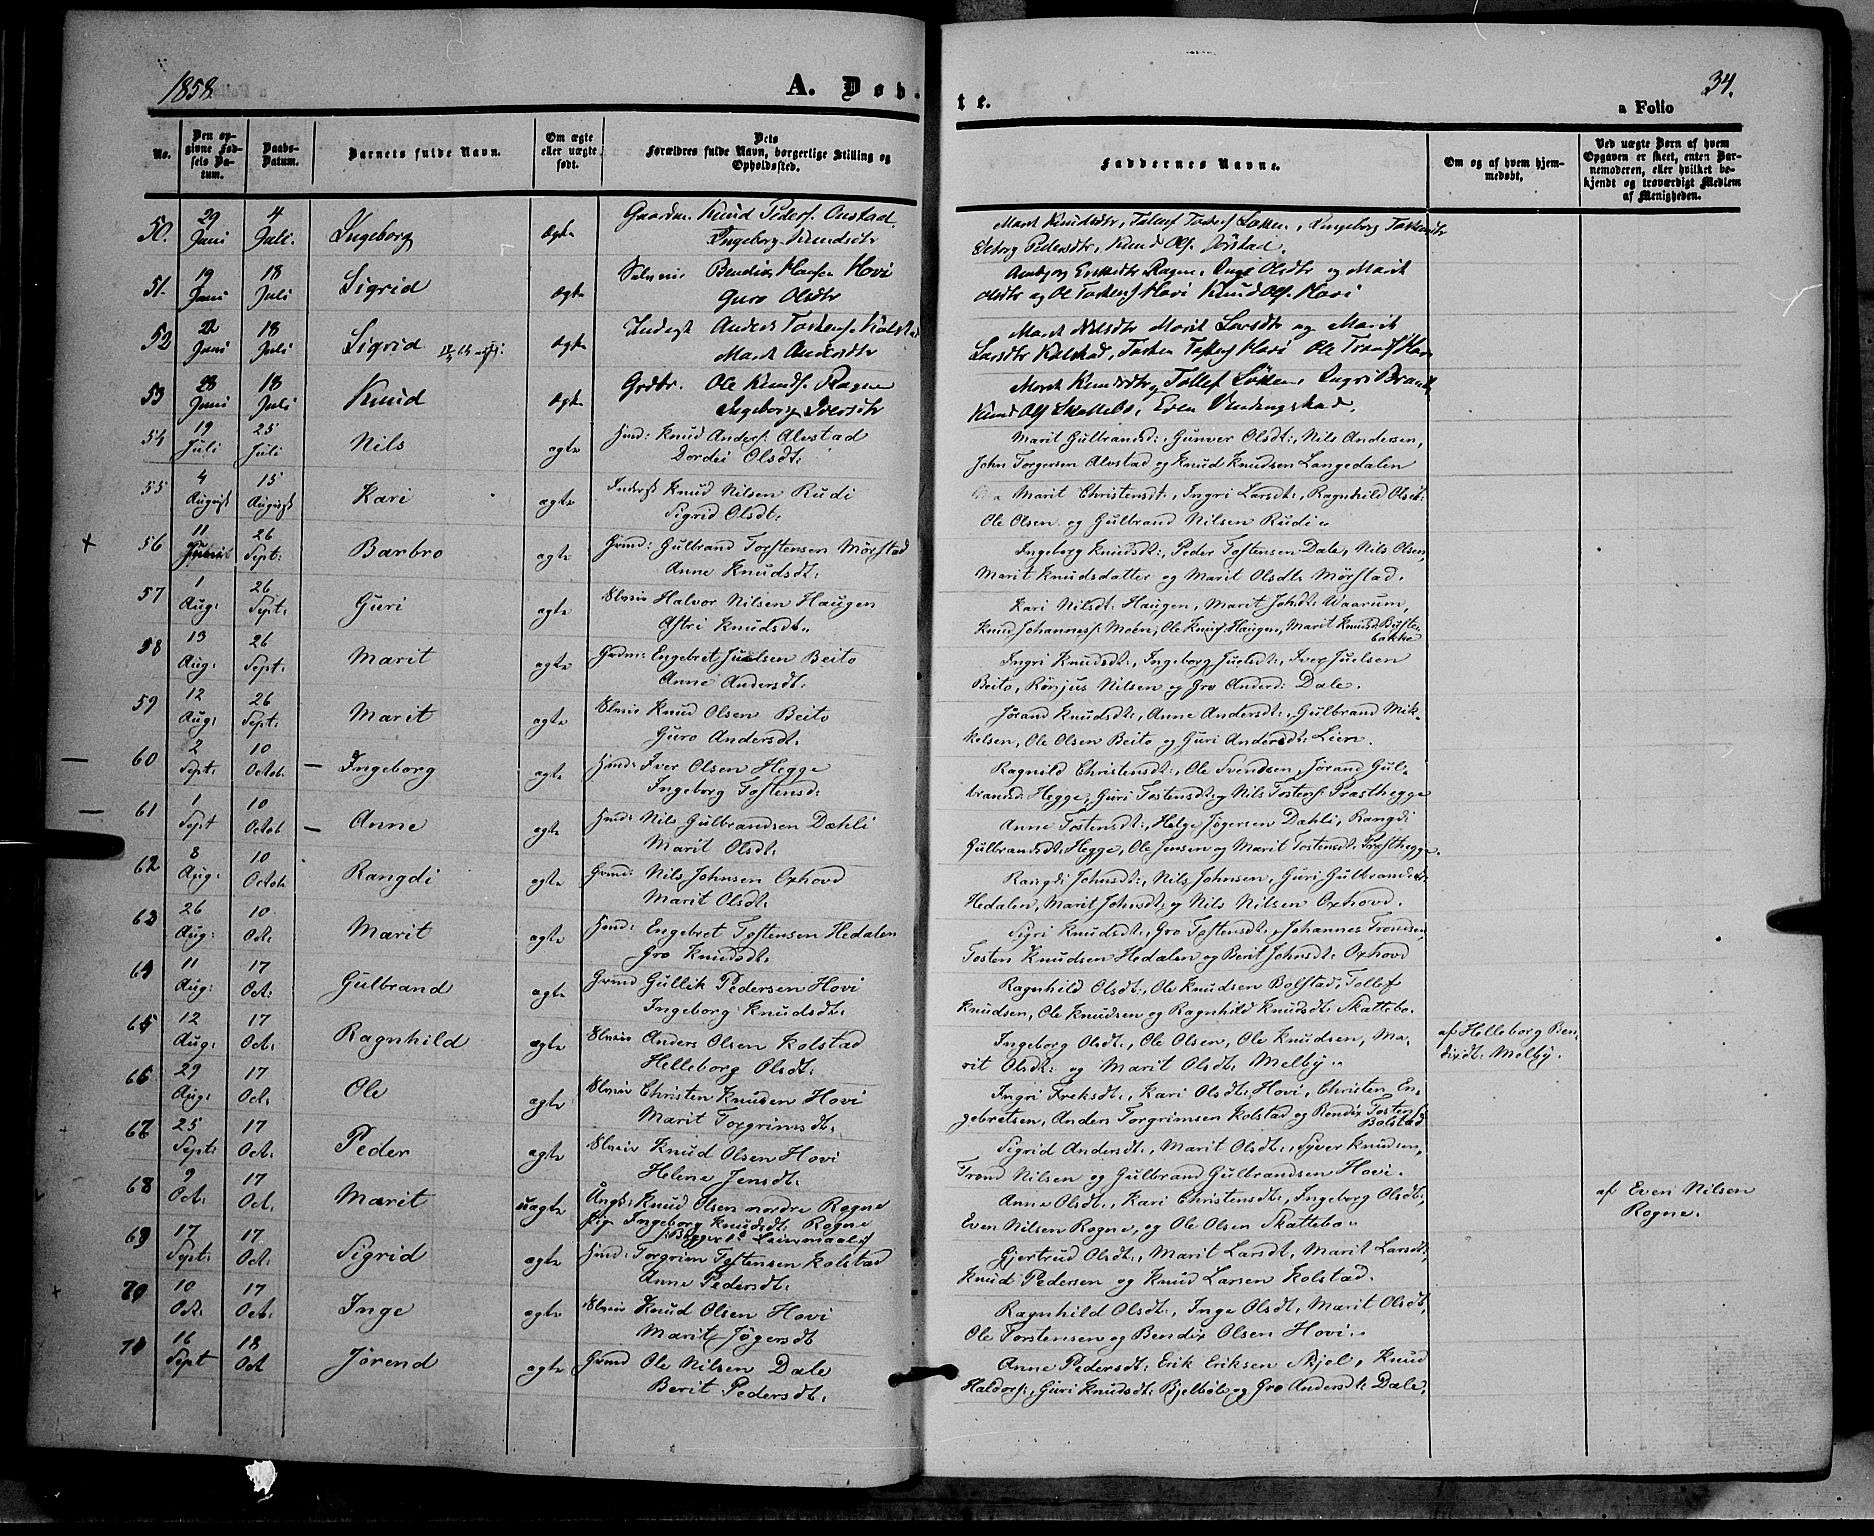 1858.
A. Døb-
te.
34.
a Folio
No.
Den op-
givne Fød-
sels Da-
tum.
Daabs-
Datum.
Barnets fulde Navn.
Om ægte
eller uægte
født.
Dets
Forældres fulde Navn, borgerlige Stilling og
Opholdssted.
Faddernes Navne.
Om og af hvem hjem-
medøbt.
Ved uægte Børn af hvem
Opgaven er skeet, enten Bar-
nemoderen, eller hvilket be-
kjendt og troværdigt Medlem
af Menigheden.
50. 29 Juni 4 Juli. Ingeborg ægte Gaardm. Knud Peders. Onstad
Ingeborg Knudsdtr
Marit Knudsdtr, Tollef Løkken, Ingeborg
Pedersdtr, Knud Ols.
51. 19 Juni 18 Juli Sigrid ægte Selveier Bendix Hansen Hovi
Guro Olsdtr
Ragne, Inge Olsdtr og Marit
Olsdtr og Ole Hovi Knud Ols. Hovi
52 22 Juni 18 Juli Sigrid ægte Inderst Anders Kolstad
Marit Andersdtr
Marit Nilsdtr Marit Larsdtr og Marit
Larsdtr Kolstad, Hovi Ole Hovi
53 28 Juni 18 Juli Knud ægte Grdbr. Ole Knuds. Rogne
Ingeborg Iversdtr
Marit Knudsdtr, Tollef Løkken, Ingri
Knud Ols. Skattebo, Even
54 19 Juli 25 Juli Nils ægte Hmd: Knud Anders. Alvstad
Dordei Olsdt:
Marit Gulbrandsd:, Gunver Olsdt:, Nils Andersen,
John Torgersen Alvstad og Knud Knudsen Langedalen
55 4 August 15 August Kari ægte Inderst Knud Nilsen Rudi
Sigrid Olsdt:
Marit Christensdt:, Ingri Larsdt:, Ragnhild Olsdt:
Ole Olsen og Gulbrand Nilsen Rudi.
+ 56 11 26 Sept: Barbro ægte Grmd: Gulbrand Torstensen Mørstad
Anne Knudsdt:
Ingeborg Knudsdt:, Peder Tostensen Dale, Nils Olsen,
Marit Knudsdatter og Marit Olsdt: Mørstad.
57 1 Aug: 26 Sept: Guri ægte Slveier Halvor Nilsen Haugen
Astri Knudsdt.
Kari Nilsdt: Haugen, Marit Johdt: Waarum,
Knud Johannes. Moen, Ole Knuds. Haugen, Marit Knudsd
bakke
58 13 Aug: 26 Sept: Marit ægte Grdm: Engebret Juelsen Beito
Anne Andersdt.
Ingri Knudsdt:, Ingeborg Juelsdt:, Iver Juelsen
Beito, Rønjus Nilsen og Gro Andersd: Dale.
59 12 Aug: 26 Sept: Marit ægte Slveier Knud Olsen Beito
Guro Andersdt.
Jørand Knudsdt:, Anne Andersdt:, Gulbrand Mik-
kelsen, Ole Olsen Beito og Guri Andersdt: Lien.
— 60 2 Sept: 10 Octob. — Ingeborg ægte Hmd: Iver Olsen Hegge
Ingeborg Tostensd:
Ragnild Christensdt:, Ole Svendsen, Jørand Gul-
brandsd: Hegge, Guri Tostensdt: og Nils Tostens. Præsthegge
— 61 1 Sept 10 Octob — Anne ægte Hmd: Nils Gulbrandsen Dæhli
Marit Olsdt:
Anne Tostensdt:, Helge Jøgersen Dæhli, Rangdi
Gulbrandsdt: Hegge, Ole Jensen og Marit Tostensdt: Præsthegge.
62 8 Aug: 10 Octob. Rangdi ægte Grmd: Nils Johnsen Oxhovd
Marit Olsdt:
Rangdi Johnsdt:, Nils Johnsen, Guri Gulbrandsdt:
Hedalen, Marit Johnsdt: og Nils Nilsen Oxhovd.
63 26 Aug: 10 Oct: Marit ægte Hmd: Engebret Tostensen Hedalen
Gro Knudsdt:
Sigri Knudsdt:, Gro Tostensdt:, Johannes Trondsen,
Tosten Knudsen Hedalen og Berit Johnsdt: Oxhovd
64 11 Aug: 17 Oct: Gulbrand ægte Grmd Gullik Pedersen Hovi
Ingeborg Knudsdt:
Ragnhild Olsdt:, Ole Knudsen Bolstad, Tollef
Knudsen, Ole Knudsen og Ragnhild Knudsdt: Skattebo.
65 12 Aug: 17 Oct: Ragnhild ægte Slveier Anders Olsen Kolstad
Helleborg Olsdt:
Ingeborg Olsdt:, Ole Olsen, Ole Knudsen, Ma-
rit Olsdt: og Marit Olsdt: Melby.
af Helleborg Ben-
dixdt: Melby.
66 29 Aug: 17 Oct. Ole ægte Slveier Christen Knudsen Hovi
Marit Torgrimsdt:
Ingri Ereksdt:, Kari Olsdt: Hovi, Christen En-
gebretsen, Anders Torgrimsen Kolstad og Bendix Tostens.
Bolstad
67 25 Sept: 17 Oct. Peder ægte Slveier Knud Olsen Hovi
Helene Jensdt:
Sigrid Andersdt:, Marit Olsdt:, Syver Knudsen,
Trond Nilsen og Gulbrand Gulbrandsen Hovi.
68 9 Oct: 17 Oct. Marit uægte Ungk: Knud Olsen nordre Rogne
Pige Ingeborg Knudsdt: Rogne
Begges 1ste Leiermaal
Anne Olsdt:, Kari Christensdt:, Ingeborg Olsdt:,
Even Nilsen Rogne, og Ole Olsen Skattebo.
af Even Nilsen
Rogne.
69 17 Sept: 17 Oct: Sigrid ægte Hmd: Torgrim Tostensen Kolstad
Anne Pedersdt:
Gjertrud Olsdt:, Marit Larsdt, Marit Larsdt,
Knud Pedersen og Knud Larsen Kolstad.
70 10 Oct. 17 Oct. Inge ægte Slveier Knud Olsen Hovi
Marit Jøgersdt
Ragnhild Olsdt:, Inge Olsdt, Marit Olsdt,
Ole Torstensen og Bendix Olsen Hovi.
71 16 Sept 18 Oct Jørend ægte Grmd Ole Nilsen Dale
Berit Pedersdt:
Anne Pedersdt: Erik Eriksen Skjel, Knud
Haldors:, Guri Knudsdt: Bjelbøle og Gro Andersdt: Dale.